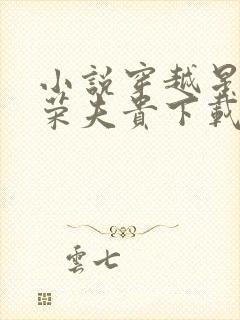 小說穿越景
荣夫貴下載
雲七